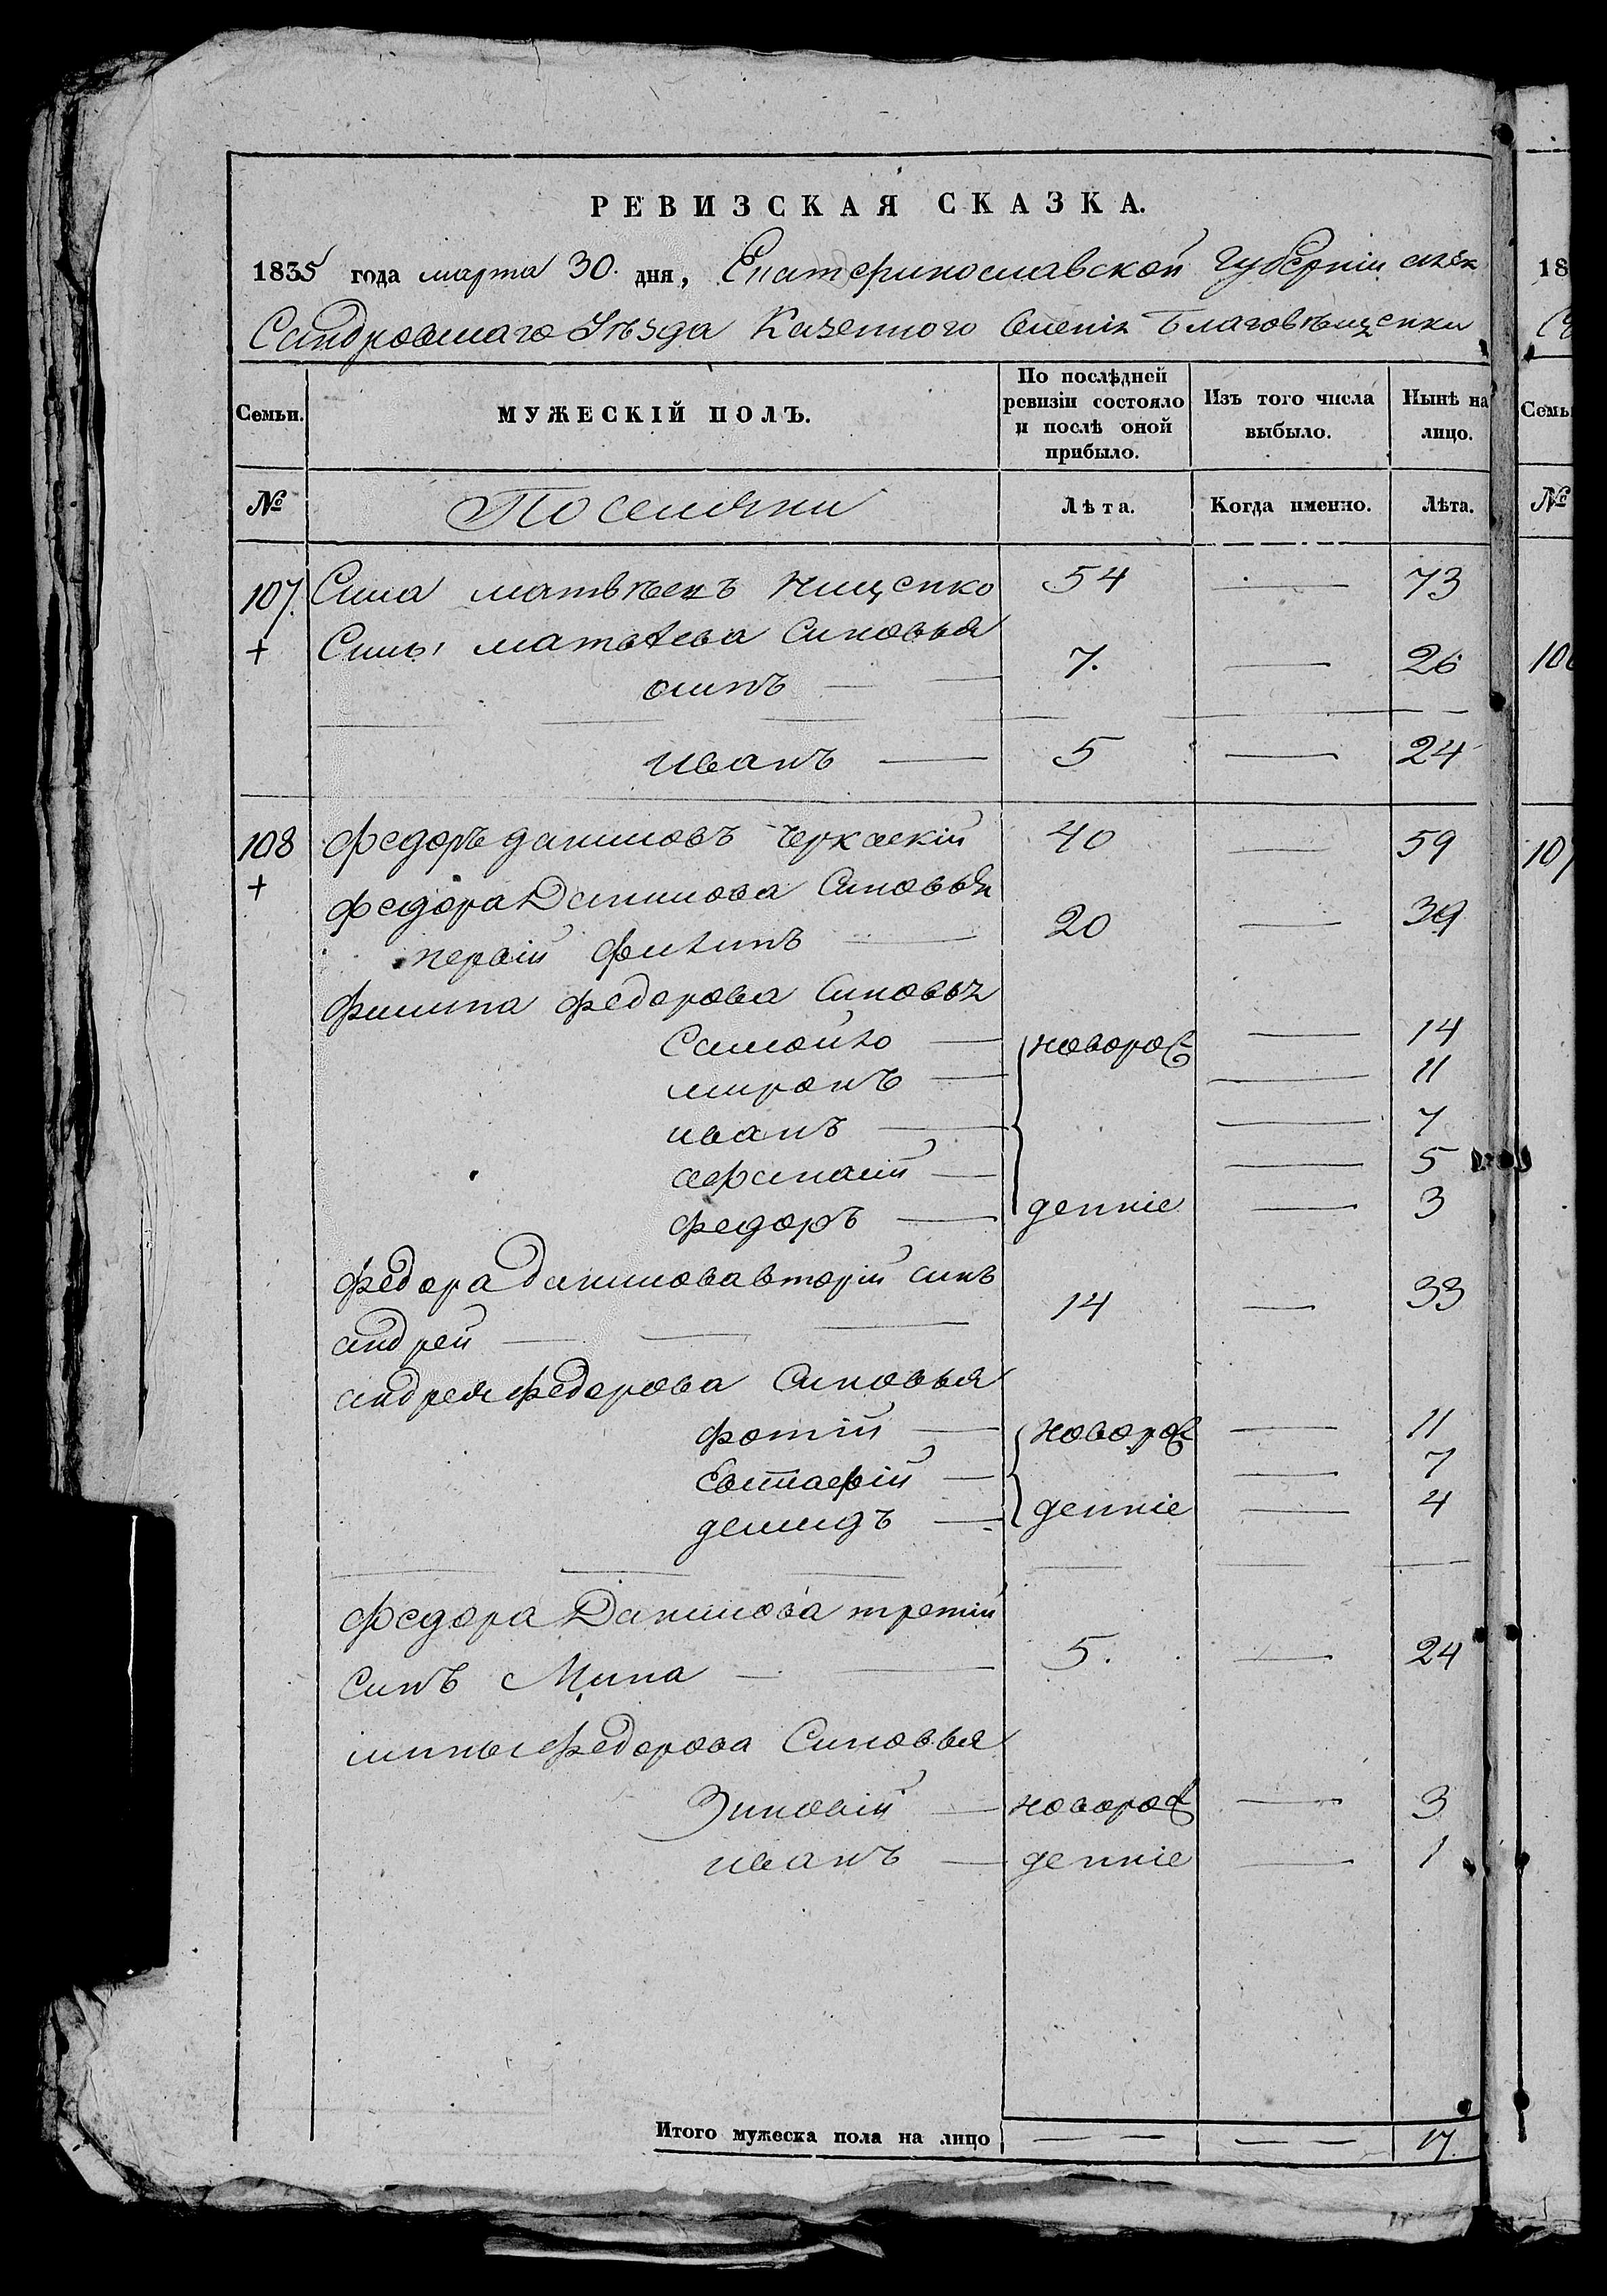 РЕВИЗСКАЯ СКАЗКА.
1835 года марта 30. дня, Екатеринославской Губерніи алек
Сандровшаго Уѣзда Казенного Селенія Благовѣщенки
Семьи. МУЖЕСКІЙ ПОЛЪ. По послѣдней ревизіи состояло и послѣ оной прибыло. Изъ того числа выбыло. Нынѣ на лицо.
№ Поселяни Лѣта. Когда именно. Лѣта.
107. Сила матвѣевъ Нищенко 54 — 73
+ Силы матвѣева Синовья
осипъ — — 7. — 26
иванъ — 5 — 24
108 федоръ даниловъ Черкаскій 40 — 59
+ федора Данилова Синовья
первій филипъ — 20 — 39
филипа федорова Синовья
Самойло — новорож — 14
миронъ — — 11
иванъ — — 7
афанасій — — 5
федоръ — денніе — 3
федора данилова вторій синъ
андрей — — — 14 — 33
андрея федорова Синовья
фотій — новорож — 11
Евстафій — — 7
демидъ — денніе — 4
федора Данилова третій
синъ Мина — — 5. — 24
мины федорова Синовья
Зиновій — новорож — 3
иванъ — денніе — 1
Итого мужеска пола на лицо — — — — 17.
18
Семь
№
106
107